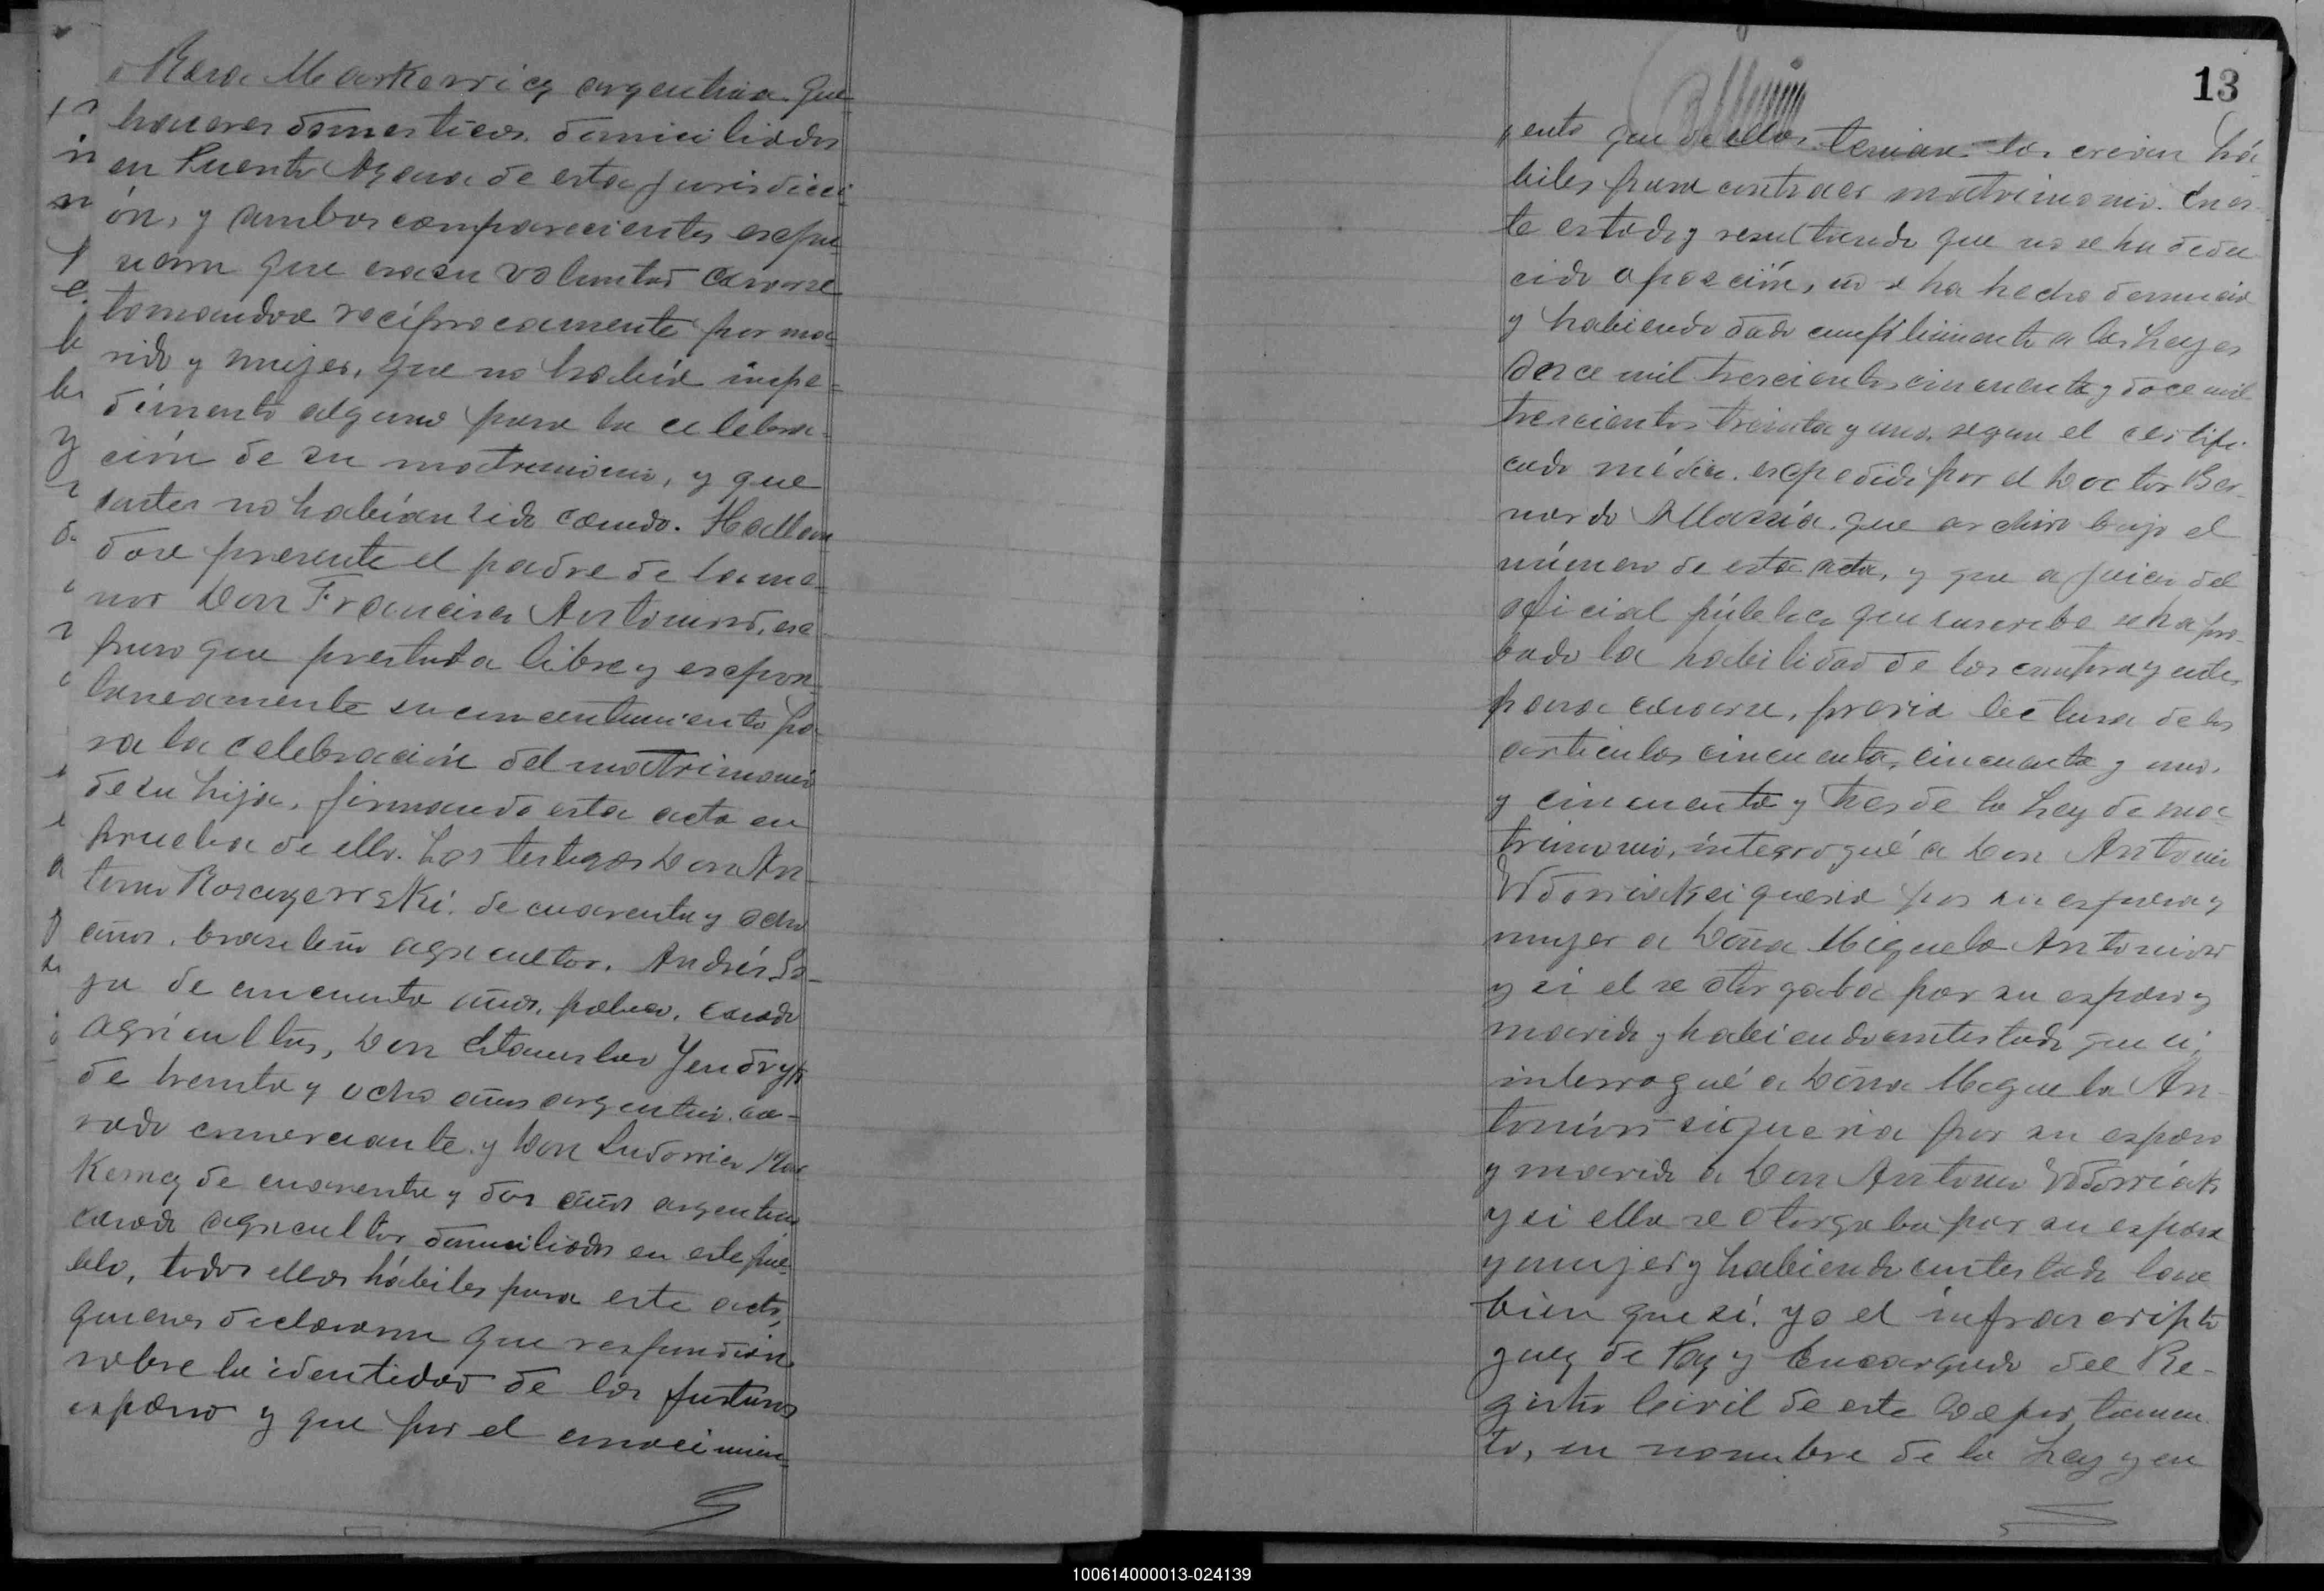 Rosa Markowicz argentina. que
haceres domesticos. domiciliados
en Puente Azara de esta jurisdicci
ón, y ambos comparecientes expu
sieron que era su voluntad casarse
tomandose recíprocamente por ma
rido y mujer, que no había impe=
dimento alguno para la celebra=
ción de su matrimonio, y que
antes no habían sido casados. Hallan
dose presente el padre de la me
nor Don Francisco Antoniow, ex
puso que prestaba libre y expon
taneamente su consentimiento pa
ra la celebración del matrimonio
de su hija, firmando esta acta en
prueba de ello. Los testigos Don An-
tonio de cuarenta y ocho
años, brasileño agricultor, Andrés
de cincuenta años, polaco, casado
agricultor, Don Estanislao
de treinta y ocho años argentino. ca-
sado comerciante y Don Ludovico
de cuarenta y dos años argentino
casado agricultor domiciliados en este pue-
blo, todos ellos hábiles para este acto,
quienes declararon que respondian
sobre la identidad de los futuros
esposos y que por el conocimien=
13
ento que de ellos tenian los creian há
biles para contraer matrimonio. En es-
te estado y resultando que no se ha dedu
cido oposición, no se ha hecho denuncia
y habiendo dado cumplimiento a las Leyes
doce mil trescientos cincuenta y doce mil
trescientos treinta y uno, segun el certifi-
cado médico expedido por el Doctor Ber-
nardo que archivo bajo el
número de esta acta, y que a juicio del
oficial público que suscribe se ha pro-
bado la habilidad de los contrayentes
para casarse, previa lectura de los
articulos cincuenta, cincuenta y uno,
y cincuenta y tres de la Ley de ma
trimonio, interrogué a Don Antonio
Wdowiak si queria por su esposa y
mujer a Doña Miguela Antoniow
y si el se otorgaba por su esposo y
marido y habiendo contestado que si,
interrogué a Doña Miguela An-
toniow si queria por su esposo
y marido a Don Antonio Wdowiak
y si ella se otorgaba por su esposa
y mujer y habiendo contestado tam
bien que sí. yo el infrascripto
juez de Paz y Encargado del Re-
gistro Civil de este Departamen
to, en nombre de la Ley y en
100614000013-024139